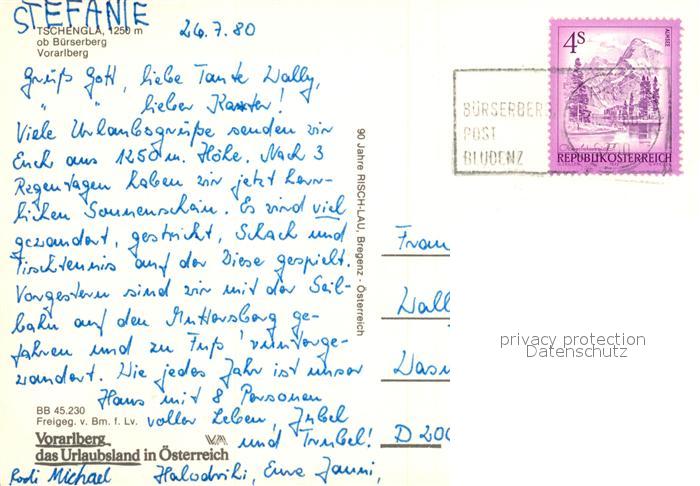 STEFANIE
TSCHENGLA, 1250 m
ob Bürserberg
Vorarlberg
26.7.80
Grüß Gott, liebe Tante Wally,
" " lieber
Viele Urlaubsgrüße senden wir
Euch aus 1250 m. Höhe. Nach 3
Regentagen haben wir jetzt herr-
lichen Sonnenschein. Es wird viel
gewandert, gestrickt, Schach und
Tischtennis auf der Diese gespielt.
Vorgestern sind wir mit der Seil-
bahn auf den Muttersberg ge-
fahren und zu Fuß runterge-
wandert. Wie jedes Jahr ist unser
Haus mit 8 Personen
voller Leben, Jubel
und Trubel!
BB 45.230
Freigeg. v. Bm. f. Lv.
Vorarlberg
das Urlaubsland in Österreich
VA
Michael
Eure
90 Jahre RISCH-LAU, Bregenz - Österreich
4S
ALMSEE
REPUBLIK ÖSTERREICH
BÜRSERBERG
POST
BLUDENZ
Wally
D 200
privacy protection
Datenschutz